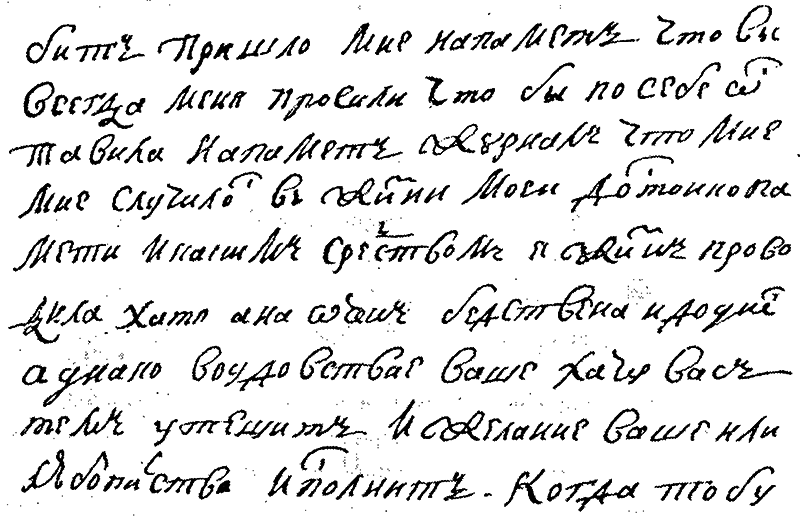 битъ пришло мне напаметъ что вы
всегда меня просили что бы по себе ѡс
тавила напаметъ журналъ что мне
мне случилос въ жизни моеи достоино па
мети икаимъ среством я жизнь прово
дила хатя ана ѡчинь бедствена идодне
аднако воудовствае ваше хачу васъ
темъ утешитъ и желание ваше или
любопиства исполнитъ. Когда то бу